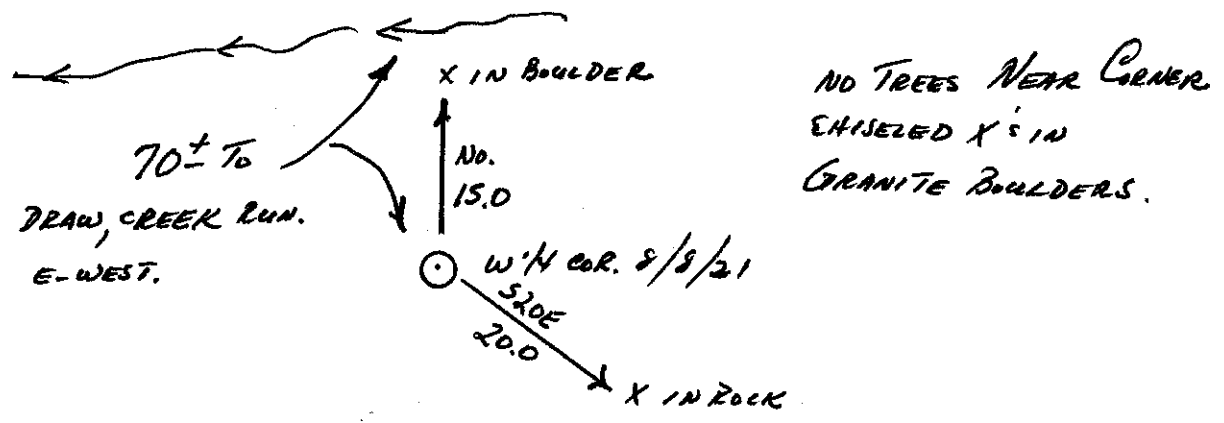 X IN BOULDER
NO TREES NEAR CORNER
CHISELED X's IN
GRANITE BOULDERS.
70± To
DRAW, CREEK RUN.
E-WEST.
No.
15.0
W 1/4 COR. 8/8/21
S20E
20.0
X IN ROCK